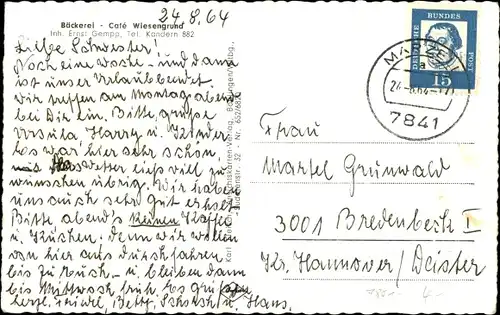 24.8.64
Bäckerei - Café Wiesengrund
Inh. Ernst Gempp, Tel. Kandern 882
Liebe Schwester!
Noch eine Woche - und dann
ist unser Urlaub beendet
Wir treffen am Montag abend
bei Dir ein. Bitte, grüße
Ursula Harry u. Kinder
Es war hier sehr schön,
das Wetter ließ viel zu
wünschen übrig. Wir haben
uns auch sehr gut erholt
Bitte abend's keinen Kaffee
u. Kuchen; denn wir wollen
von hier aus durchfahren
bis zu Euch - u. bleiben dann
bis Mittwoch früh. Es grüßen
herzl. Friedel, Betty, u. Hans,
DEUTSCHE BUNDESPOST
15
24.8.64
7841
Frau
Martel Grunwald
3001 Bredenbeck I
Kr. Hannover/Deister